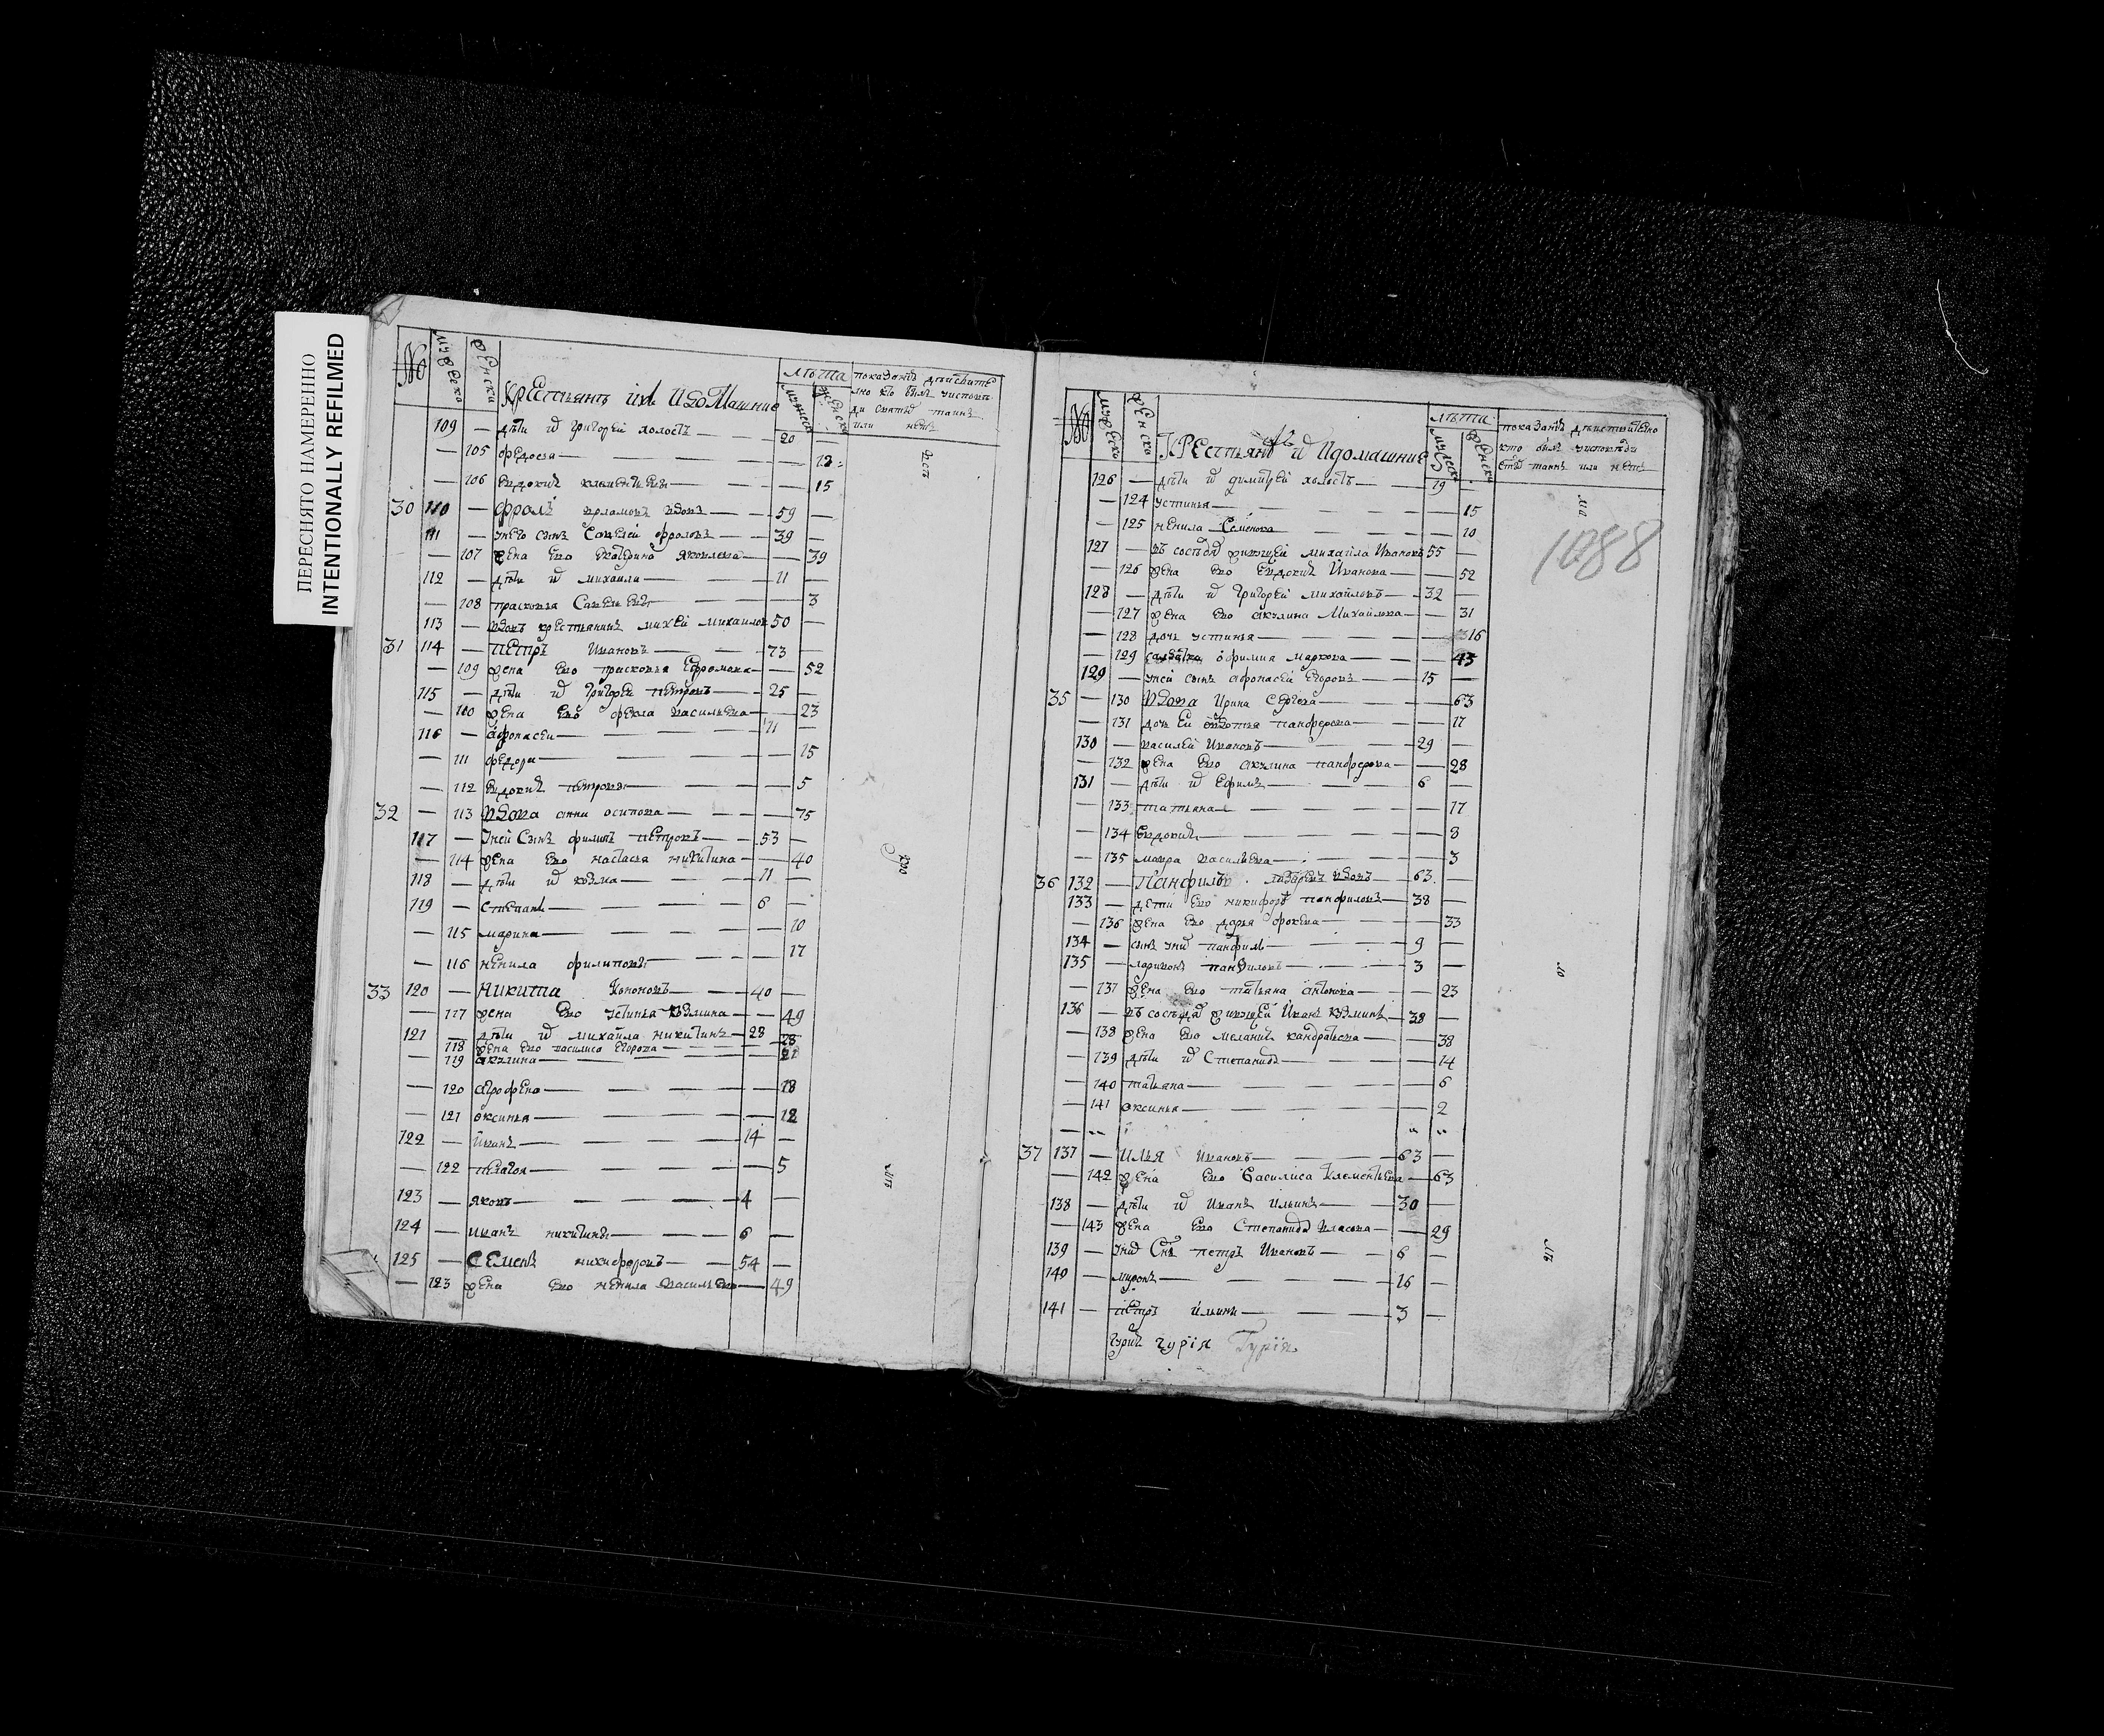 ПЕРЕСНЯТО НАМЕРЕННО
INTENTIONALLY REFILMED
№ мужеска женска крестьянъ ихъ и домашние лѣта мужеска женска
показанъ
или нетъ
109 — дѣти и григорей холостъ — 20 —
— 105 федосья — 13
— 106 евдокиѣ — 15
30 110 — фролъ вдовъ — 59 —
111 — унего сынъ савелей фроловъ — 39 —
— 107 жена ево яковлева — 39
112 — дѣти михаила — 11 —
— 108 прасковья — 3
113 — вдовъ крестьянинъ михей михаилов 50 —
31 114 — петръ ивановъ — 73 —
— 109 жена ево прасковья — 52
115 — дѣти григорей петровъ — 25 —
— 110 жена ево фекла васильева — 23
116 — афонасеи — 11 —
— 111 федора — 15
— 112 евдокиѣ петровы — 5
32 — 113 вдова анна осипова — 75
117 — уней сынъ филипъ петровъ — 53 —
— 114 жена ево настасья никитина — 40
118 — дѣти козма — 11 —
119 — степанъ — 6 —
— 115 марина — 10
— 116 ненила филиповы — 17
33 120 — никита кононовъ — 40 —
— 117 жена ево устинья козмина — 49
121 — дѣти михаила никитинъ — 28 —
— 118 жена ево василиса егорова — 28
— 119 акулина — 21
— 120 агрофена — 18
— 121 оксинья — 12
122 — иванъ — 14 —
— 122 пелагея — 5
123 — яковъ — 4 —
124 — иванъ никитины — 6 —
125 — семенъ никифоровъ — 54 —
— 123 жена ево ненила васильева — 49
№ мужеско женско крестьянъ и домашние лѣта мужеска женска
показанъ дѣиствительно
или нетъ
1088
126 — дѣти димитрей холостъ — 19 —
— 124 устинья — 15
— 125 ненила семенова — 10
127 — въ соседѣ живущей михаила ивановъ 55 —
— 126 жена ево евдокиѣ иванова — 52
128 — дѣти григорей михаиловъ — 32 —
— 127 жена ево акулина михаилова — 31
— 128 дочь устинья — 16
— 129 салдатка офимия маркова — 43
129 — уней сынъ афонасей егоровъ — 15 —
35 — 130 вдова ирина сергеева — 63
— 131 дочь ей авдотья панферова — 17
130 — василей ивановъ — 29 —
— 132 жена ево акулина панферова — 28
131 — дѣти ефимъ — 6 —
— 133 татьяна — 17
— 134 евдокиѣ — 8
— 135 мавра васильева — 3
36 132 — панфилъ вдовъ — 63 —
133 — дети ево никифоръ панфиловъ — 38 —
— 136 жена ево дарья фокеева — 33
134 — сынъ панфилъ — 9 —
135 — ларивонъ панфиловъ — 3 —
— 137 жена ево татьяна антонова — 23
136 — въ соседѣ живущей иванъ козминъ — 38 —
— 138 жена ево меланиѣ кандратьева — 38
— 139 дѣти степанида — 14
— 140 татьяна — 6
— 141 оксинья — 2
37 137 — илья ивановъ — 63 —
— 142 жена ево василиса клементьева — 63
138 — дѣти иванъ ильинъ — 30 —
— 143 жена ево степанида власова — 29
139 — петръ ивановъ — 6 —
140 — миронъ — 16 —
141 — петръ ильины — 3 —
гурия Гурія